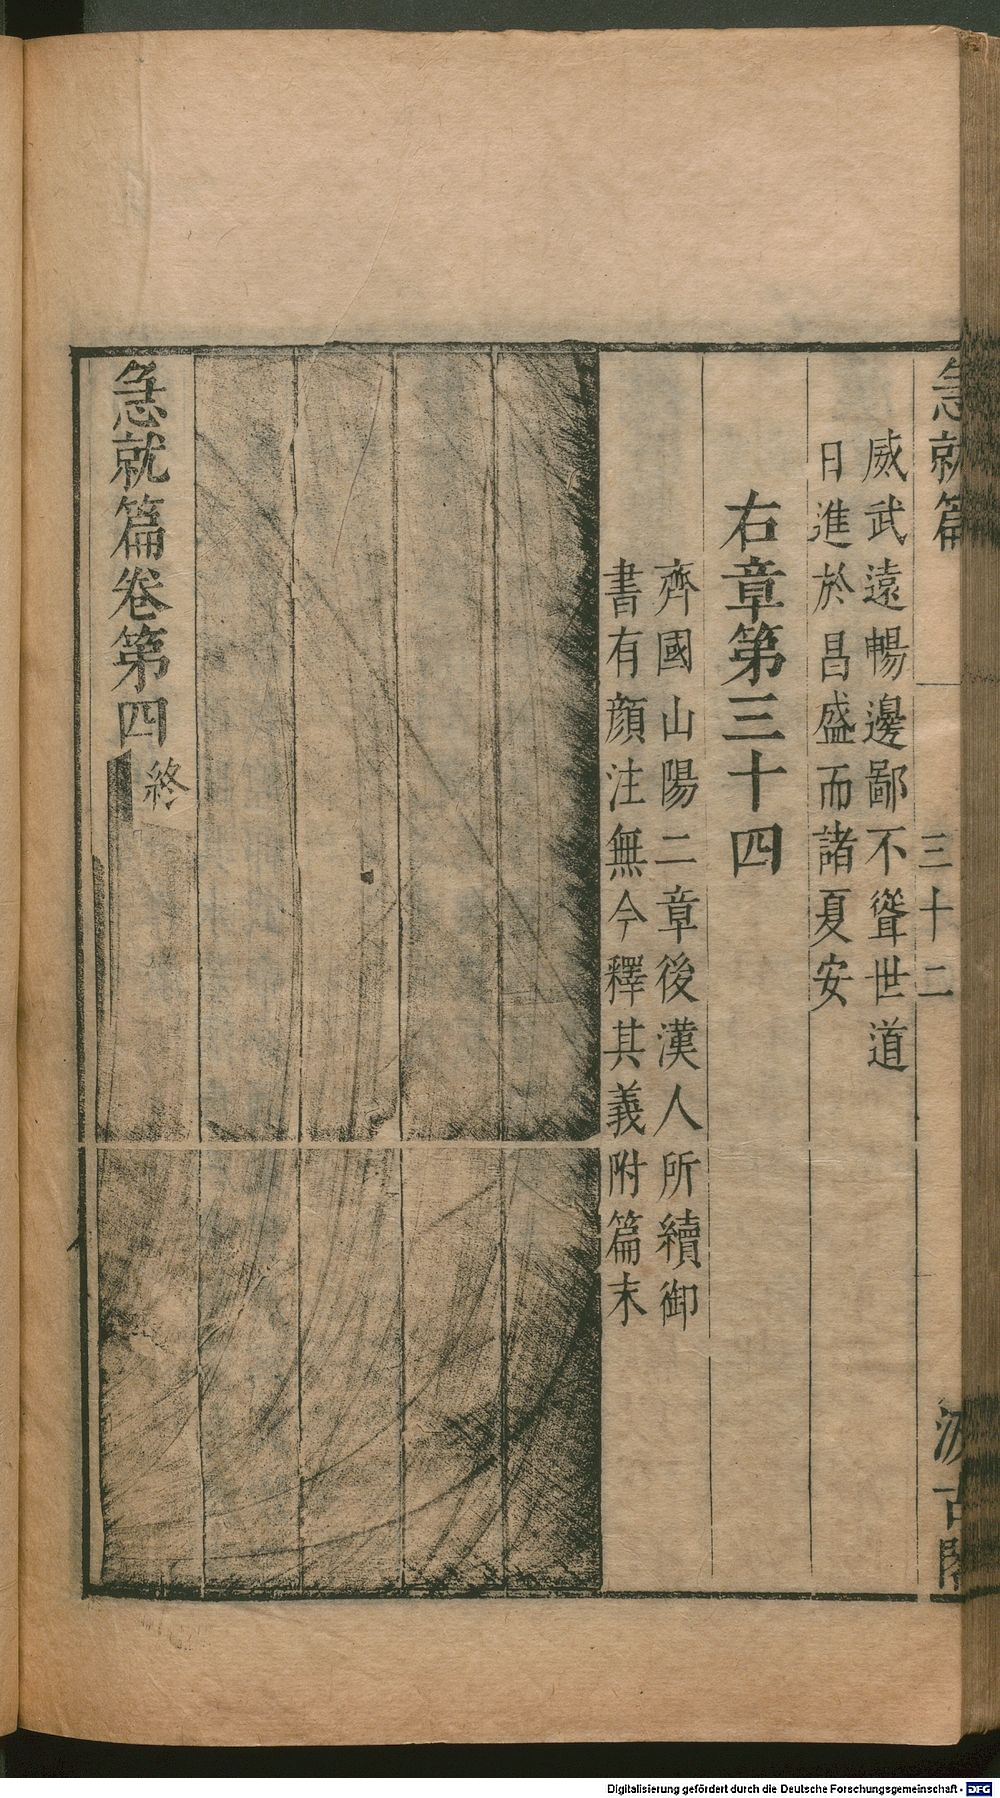 急就篇
三十二
汲古閣
威武遠暢邊鄙不聳世道
日進於昌盛而諸夏安
右章第三十四
齊國山陽二章後漢人所續御
書有顔注無今釋其義附篇末
急就篇卷第四
終
Digitalisierung gefördert durch die Deutsche Forschungsgemeinschaft - DFG